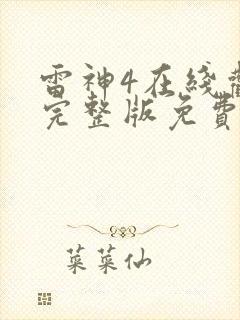 雷神4在线
完整版免費
菜菜仙